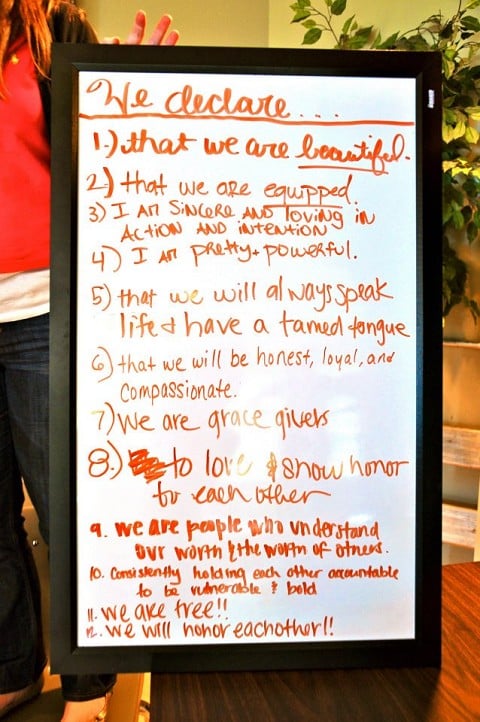 We declare...
1.) that we are beautiful.
2) that we are equipped.
3) I AM SINCERE AND loving in
ACTION AND INTENTION
4) I Am pretty + powerful.
5) that we will always speak
life & have a tamed tongue
6) that we will be honest, loyal, and
compassionate.
7) We are grace givers
8.) to love & show honor
to each other
9. we are people who understand
our worth & the worth of others.
10. Consistently holding each other accountable
to be vulnerable & bold
11. we are free!!
12. we will honor eachother!!